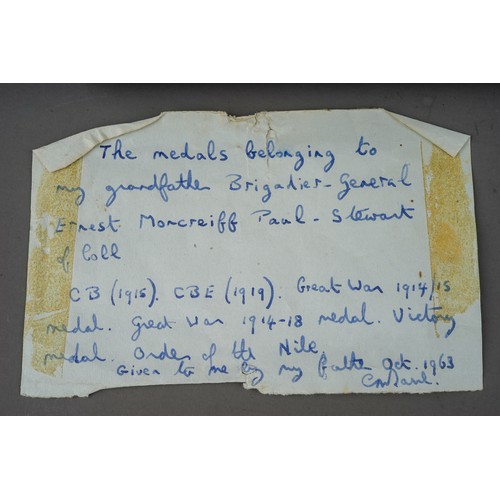 The medals belonging to
my grandfather Brigadier-General
Ernest Moncreiff Paul-Stewart
of Coll
CB (1915). CBE (1919). Great War 1914/15
medal. Great War 1914-18 medal. Victory
medal. Order of the Nile.
Given to me by my father Oct. 1963